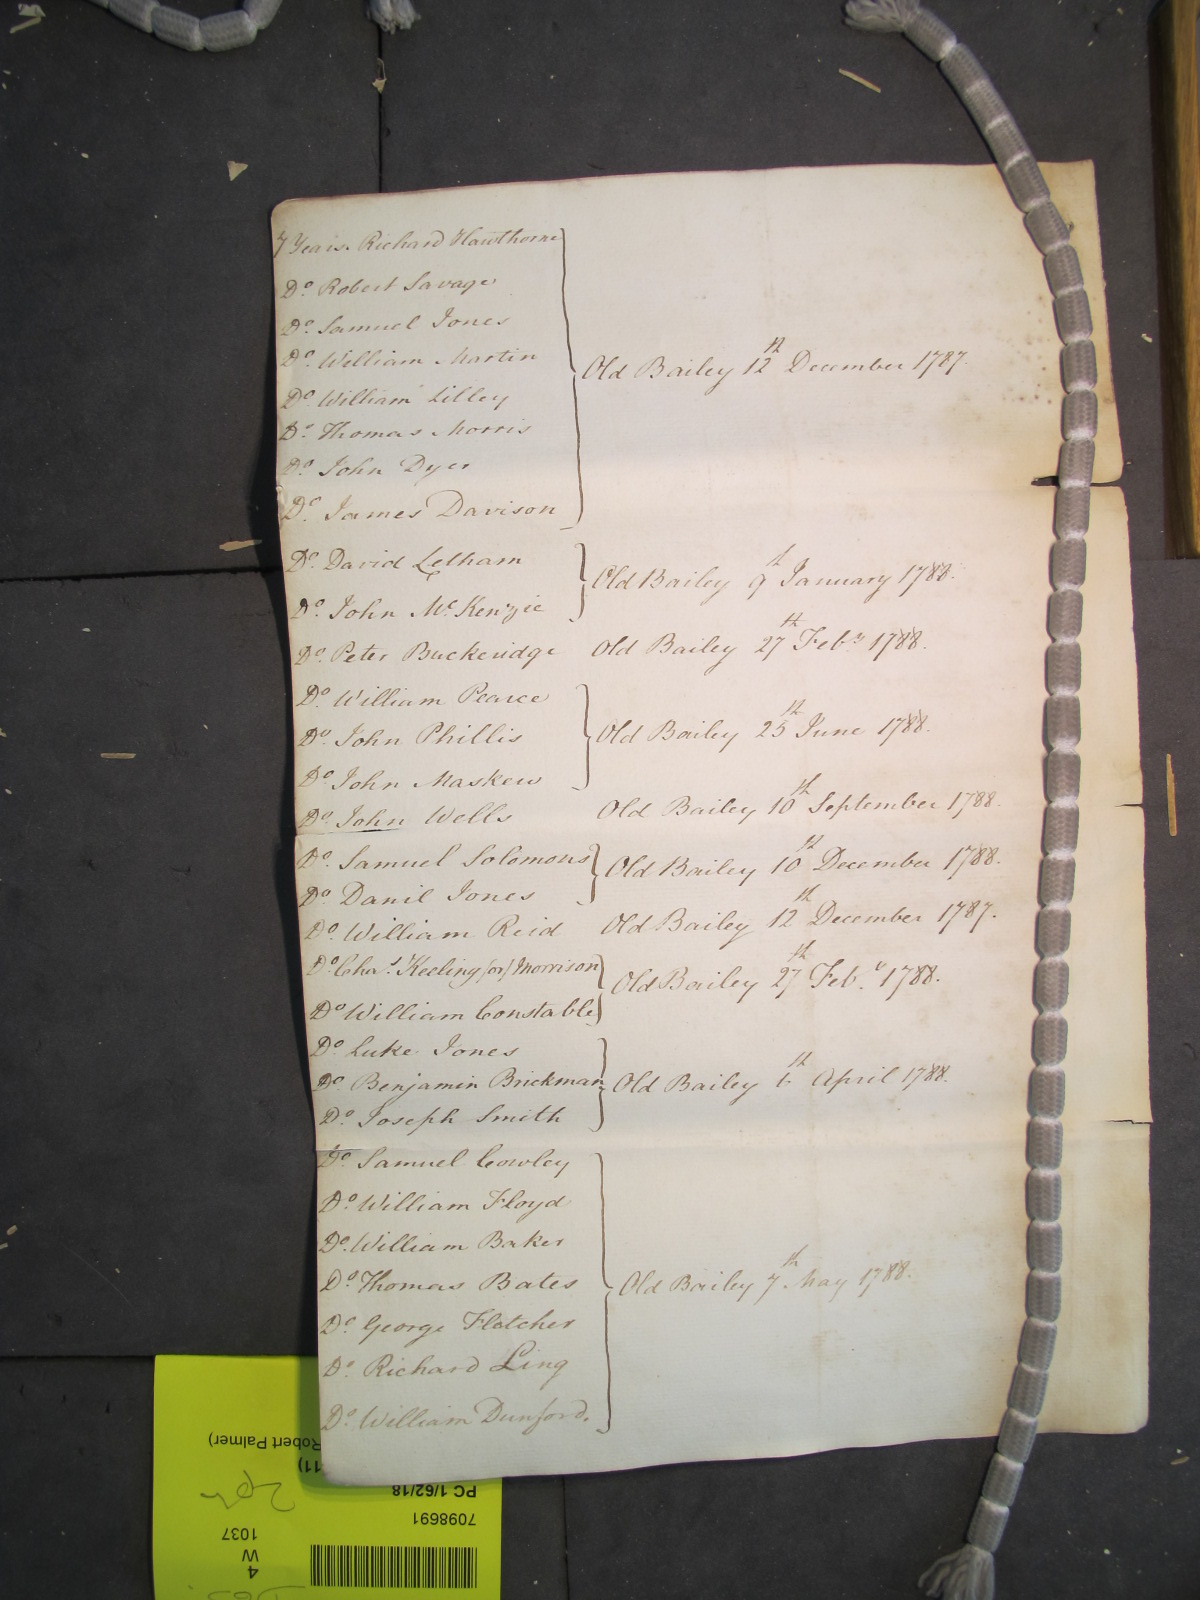 7 Years. Richard Hawthorne
Do. Robert Savage
Do. Samuel Jones
Do. William Martin
Old Bailey 12th December 1787.
Do. William Lilley
Do. Thomas Morris
Do. John Dyer
Do. James Davison
Do. David Letham
Old Bailey 9th January 1788.
Do. John McKenzie
Do. Peter Buckeridge Old Bailey 27th Feby 1788.
Do. William Pearce
Do. John Phillis
Old Bailey 25th June 1788.
Do. John Maskew
Do. John Wells Old Bailey 10th September 1788.
Do. Samuel Solomons
Old Bailey 10th December 1788.
Do. Danil Jones
Do. William Reid Old Bailey 12th December 1787.
Do. Chas. Keeling /or/ Morrison
Old Bailey 27th Feby. 1788.
Do. William Constable
Do. Luke Jones
Do. Benjamin Brickman Old Bailey April 1788.
Do. Joseph Smith
Do. Samuel Cowley
Do. William Floyd
Do. William Baker
Do. Thomas Bates
Old Bailey 7th May 1788.
Do. George Fletcher
Do. Richard Ling
Do. William Dunford.
4
W
1037
7098691
PC 1/62/18
11)
Robert Palmer)